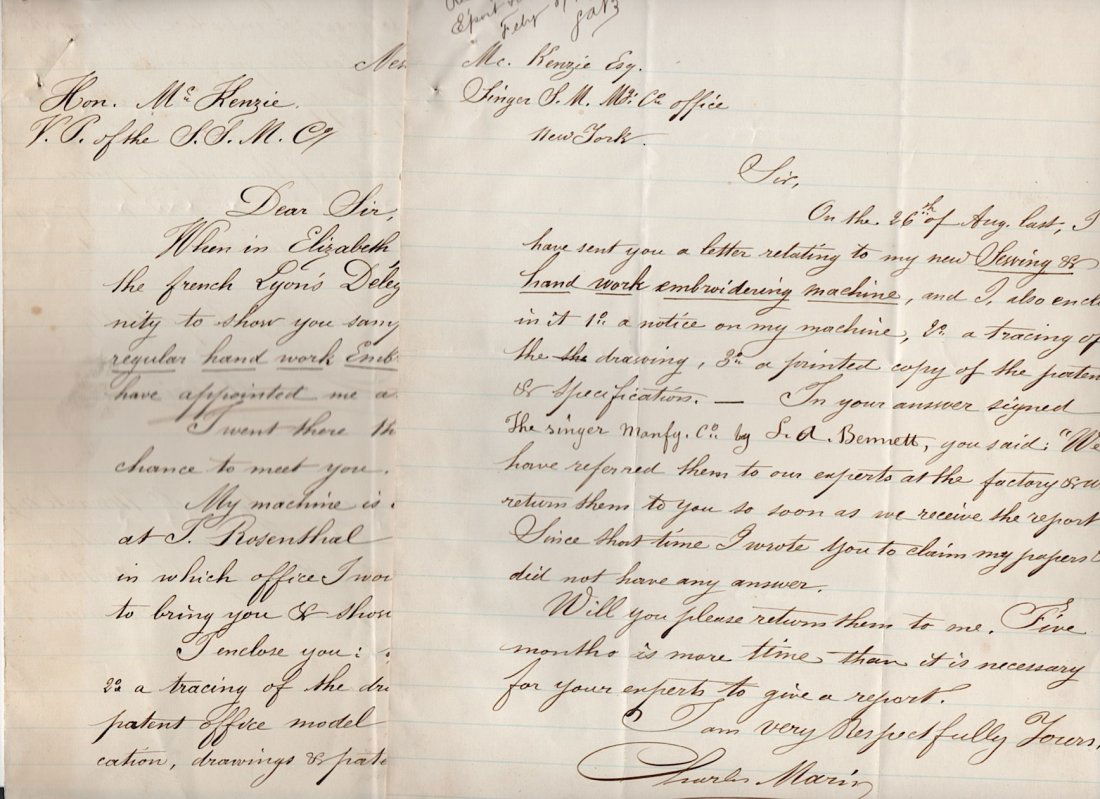 Hon. Mc Kenzie.
V. P. of the S. S. M. Co
Dear Sir,
When in Elizabeth,
the french Lyon's Deleg
nity to show you samp
regular hand work Emb
have appointed me a
I went there th
chance to meet you.
My machine is
at T. Rosenthal
in which office I wou
to bring you & show
I enclose you:
2o a tracing of the dra
patent office model
cation, drawings & pate
Feby
Mc. Kenzie Esq.
Singer S. M. Mg. Co office
New York.
Sir,
On the 26th of Aug. last, I
have sent you a letter relating to my new Sewing &
hand work embroidering machine, and I also encl
in it 1o a notice on my machine, 2o a tracing of
the the drawing, 3o a printed copy of the paten
& specification. — In your answer signed
The singer Manfg. Co. by L. A. Bennett, you said: "We
have referred them to our experts at the factory & w
return them to you so soon as we receive the report
Since that time I wrote you to claim my papers &
did not have any answer.
Will you please return them to me. Five
months is more time than it is necessary
for your experts to give a report.
I am very Respectfully Yours,
Charles Marin